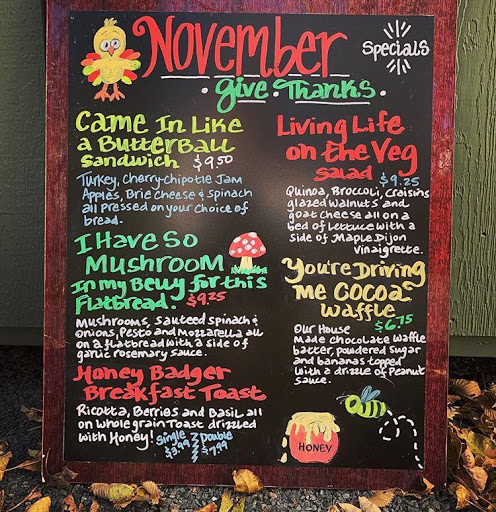 November
Specials
• give • Thanks •
Came In Like
a Butterball
Sandwich $9.50
Turkey, Cherry-chipotle Jam
Apples, Brie Cheese & spinach
all pressed on your choice of
bread.
I Have So
Mushroom
In my Belly for this
Flatbread. $9.25
Mushrooms, sauteed spinach &
onions, Pesto and Mozzarella all
on a flatbread with a side of
garlic rosemary sauce.
Honey Badger
Breakfast Toast
Ricotta, Berries and Basil all
on whole grain Toast drizzled
with Honey! Single Double
$3.99
Living Life
on the Veg
Salad $9.25
Quinoa, Broccoli, craisins
glazed walnuts and
goat cheese all on a
bed of lettuce with a
side of Maple Dijon
Vinaigrette.
You're Driving
Me Cocoa
Waffle
$6.75
Our House
Made chocolate waffle
batter, powdered sugar
and bananas topped
with a drizzle of Peanut
sauce.
HONEY